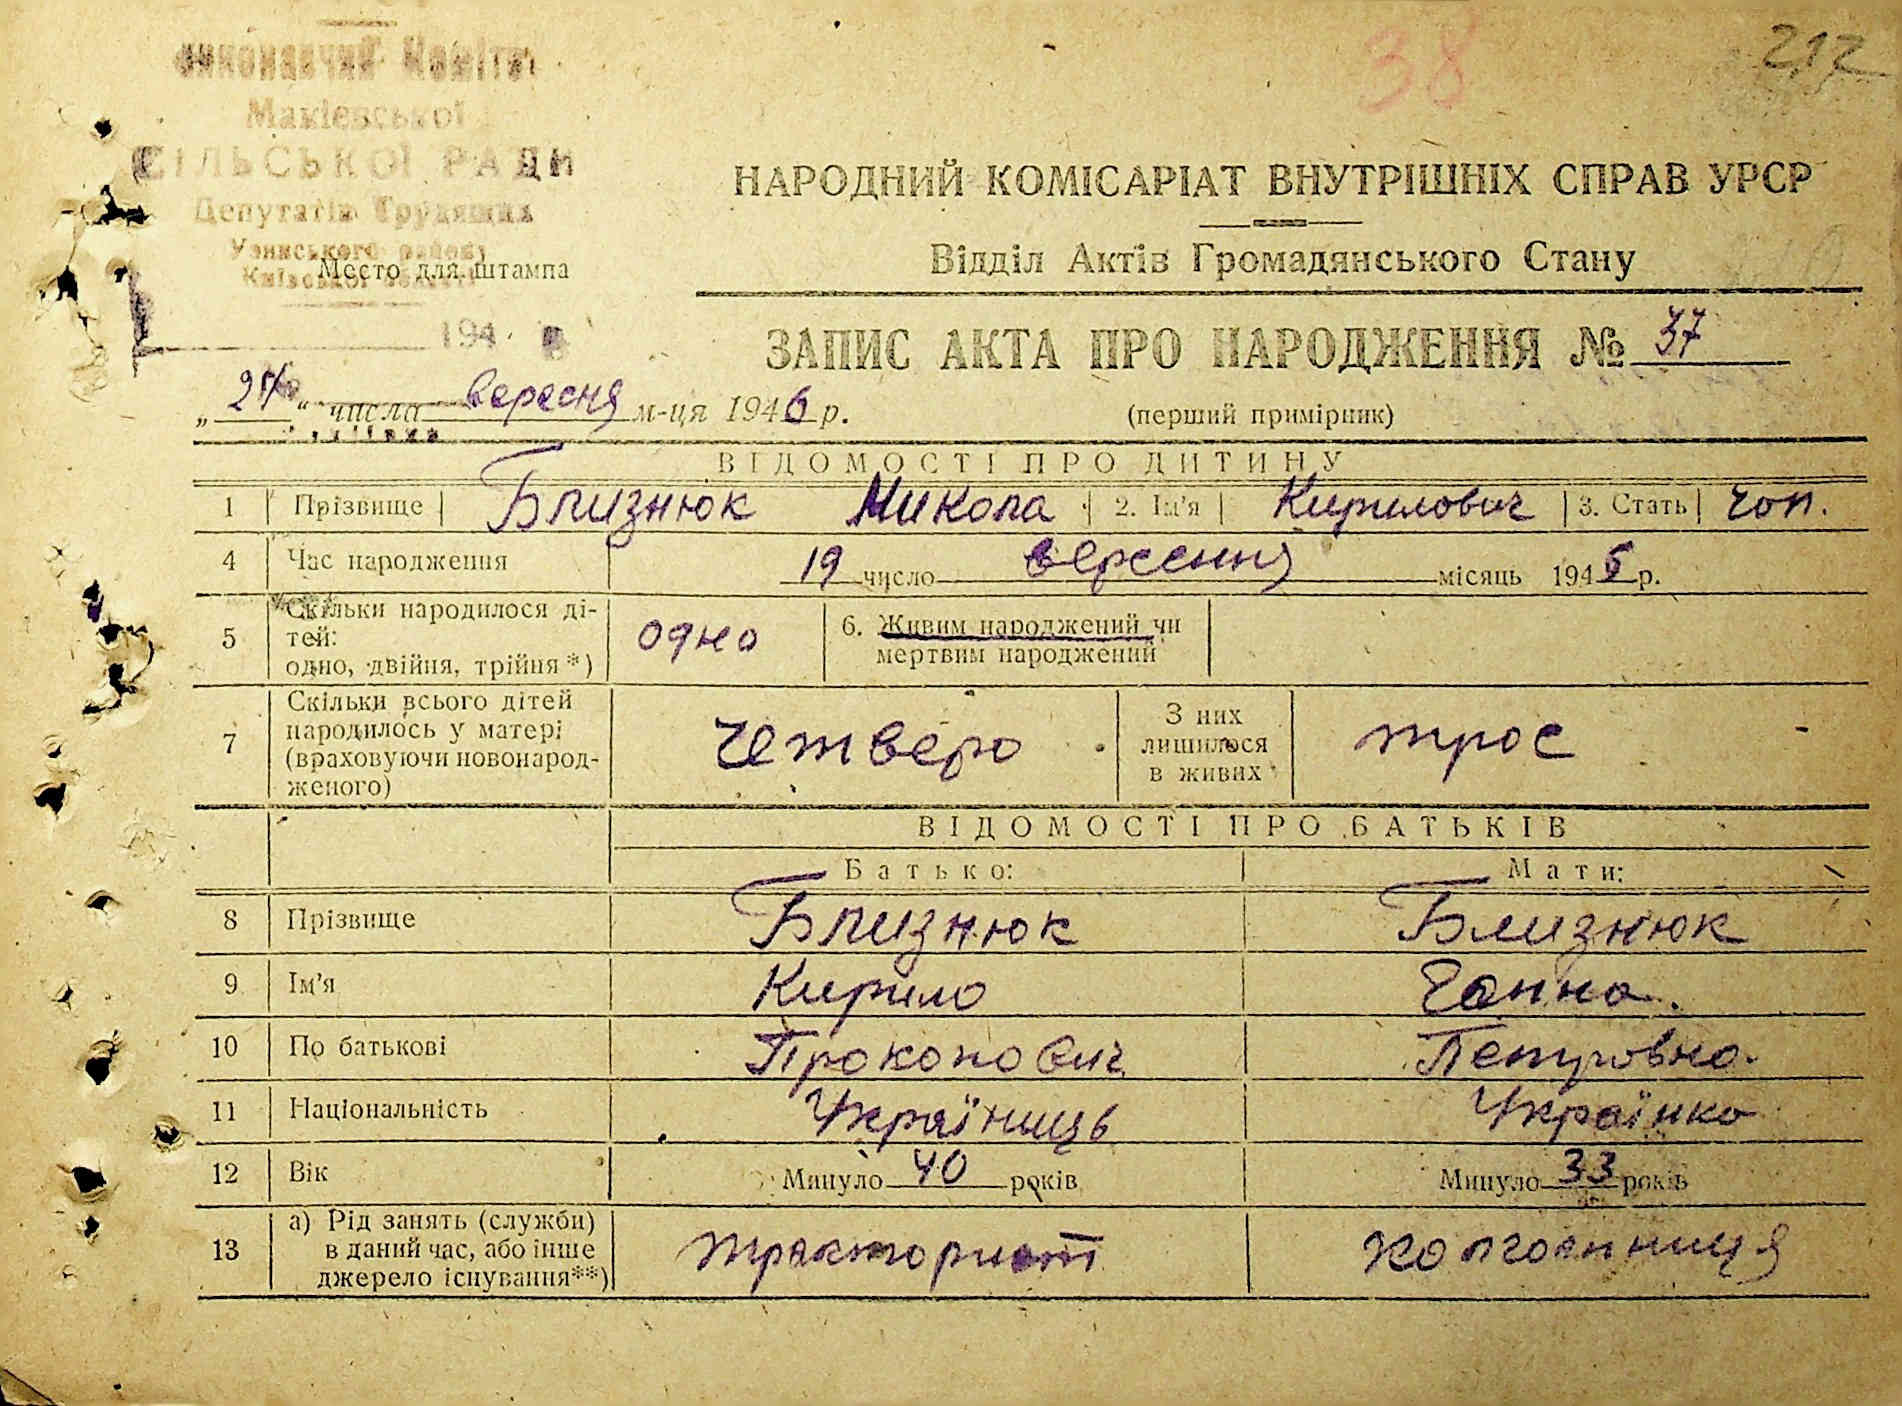 Виконавчий Комітет
Макіевської
СІЛЬСЬКОЇ РАДИ
Депутатів Трудящих
Узинського району
Київської області
Место для штампа
194
38
212
НАРОДНИЙ КОМІСАРІАТ ВНУТРІШНІХ СПРАВ УРСР
Відділ Актів Громадянського Стану
ЗАПИС АКТА ПРО НАРОДЖЕННЯ № 37
„ “ числа вересня м-ця 1946 р.
(перший примірник)
ВІДОМОСТІ ПРО ДИТИНУ
1 Прізвище Близнюк Микола 2. Ім'я Кирилович 3. Стать чол.
4 Час народження 19 число вересння місяць 1946 р.
5 Скільки народилося ді-
тей:
одно, двійня, трійня*) одно 6. Живим народжений чи
мертвим народжений
7 Скільки всього дітей
народилось у матері
(враховуючи новонарод-
женого) четверо З них
лишилося
в живих троє
ВІДОМОСТІ ПРО БАТЬКІВ
Батько: Мати:
8 Прізвище Близнюк Близнюк
9 Ім'я Кирило Ганна.
10 По батькові Прокопович Петровна.
11 Національність Україниць Українка
12 Вік Минуло 40 років Минуло 33 років
13 а) Рід занять (служби)
в даний час, або інше
джерело існування**) тракторист колгоспниця